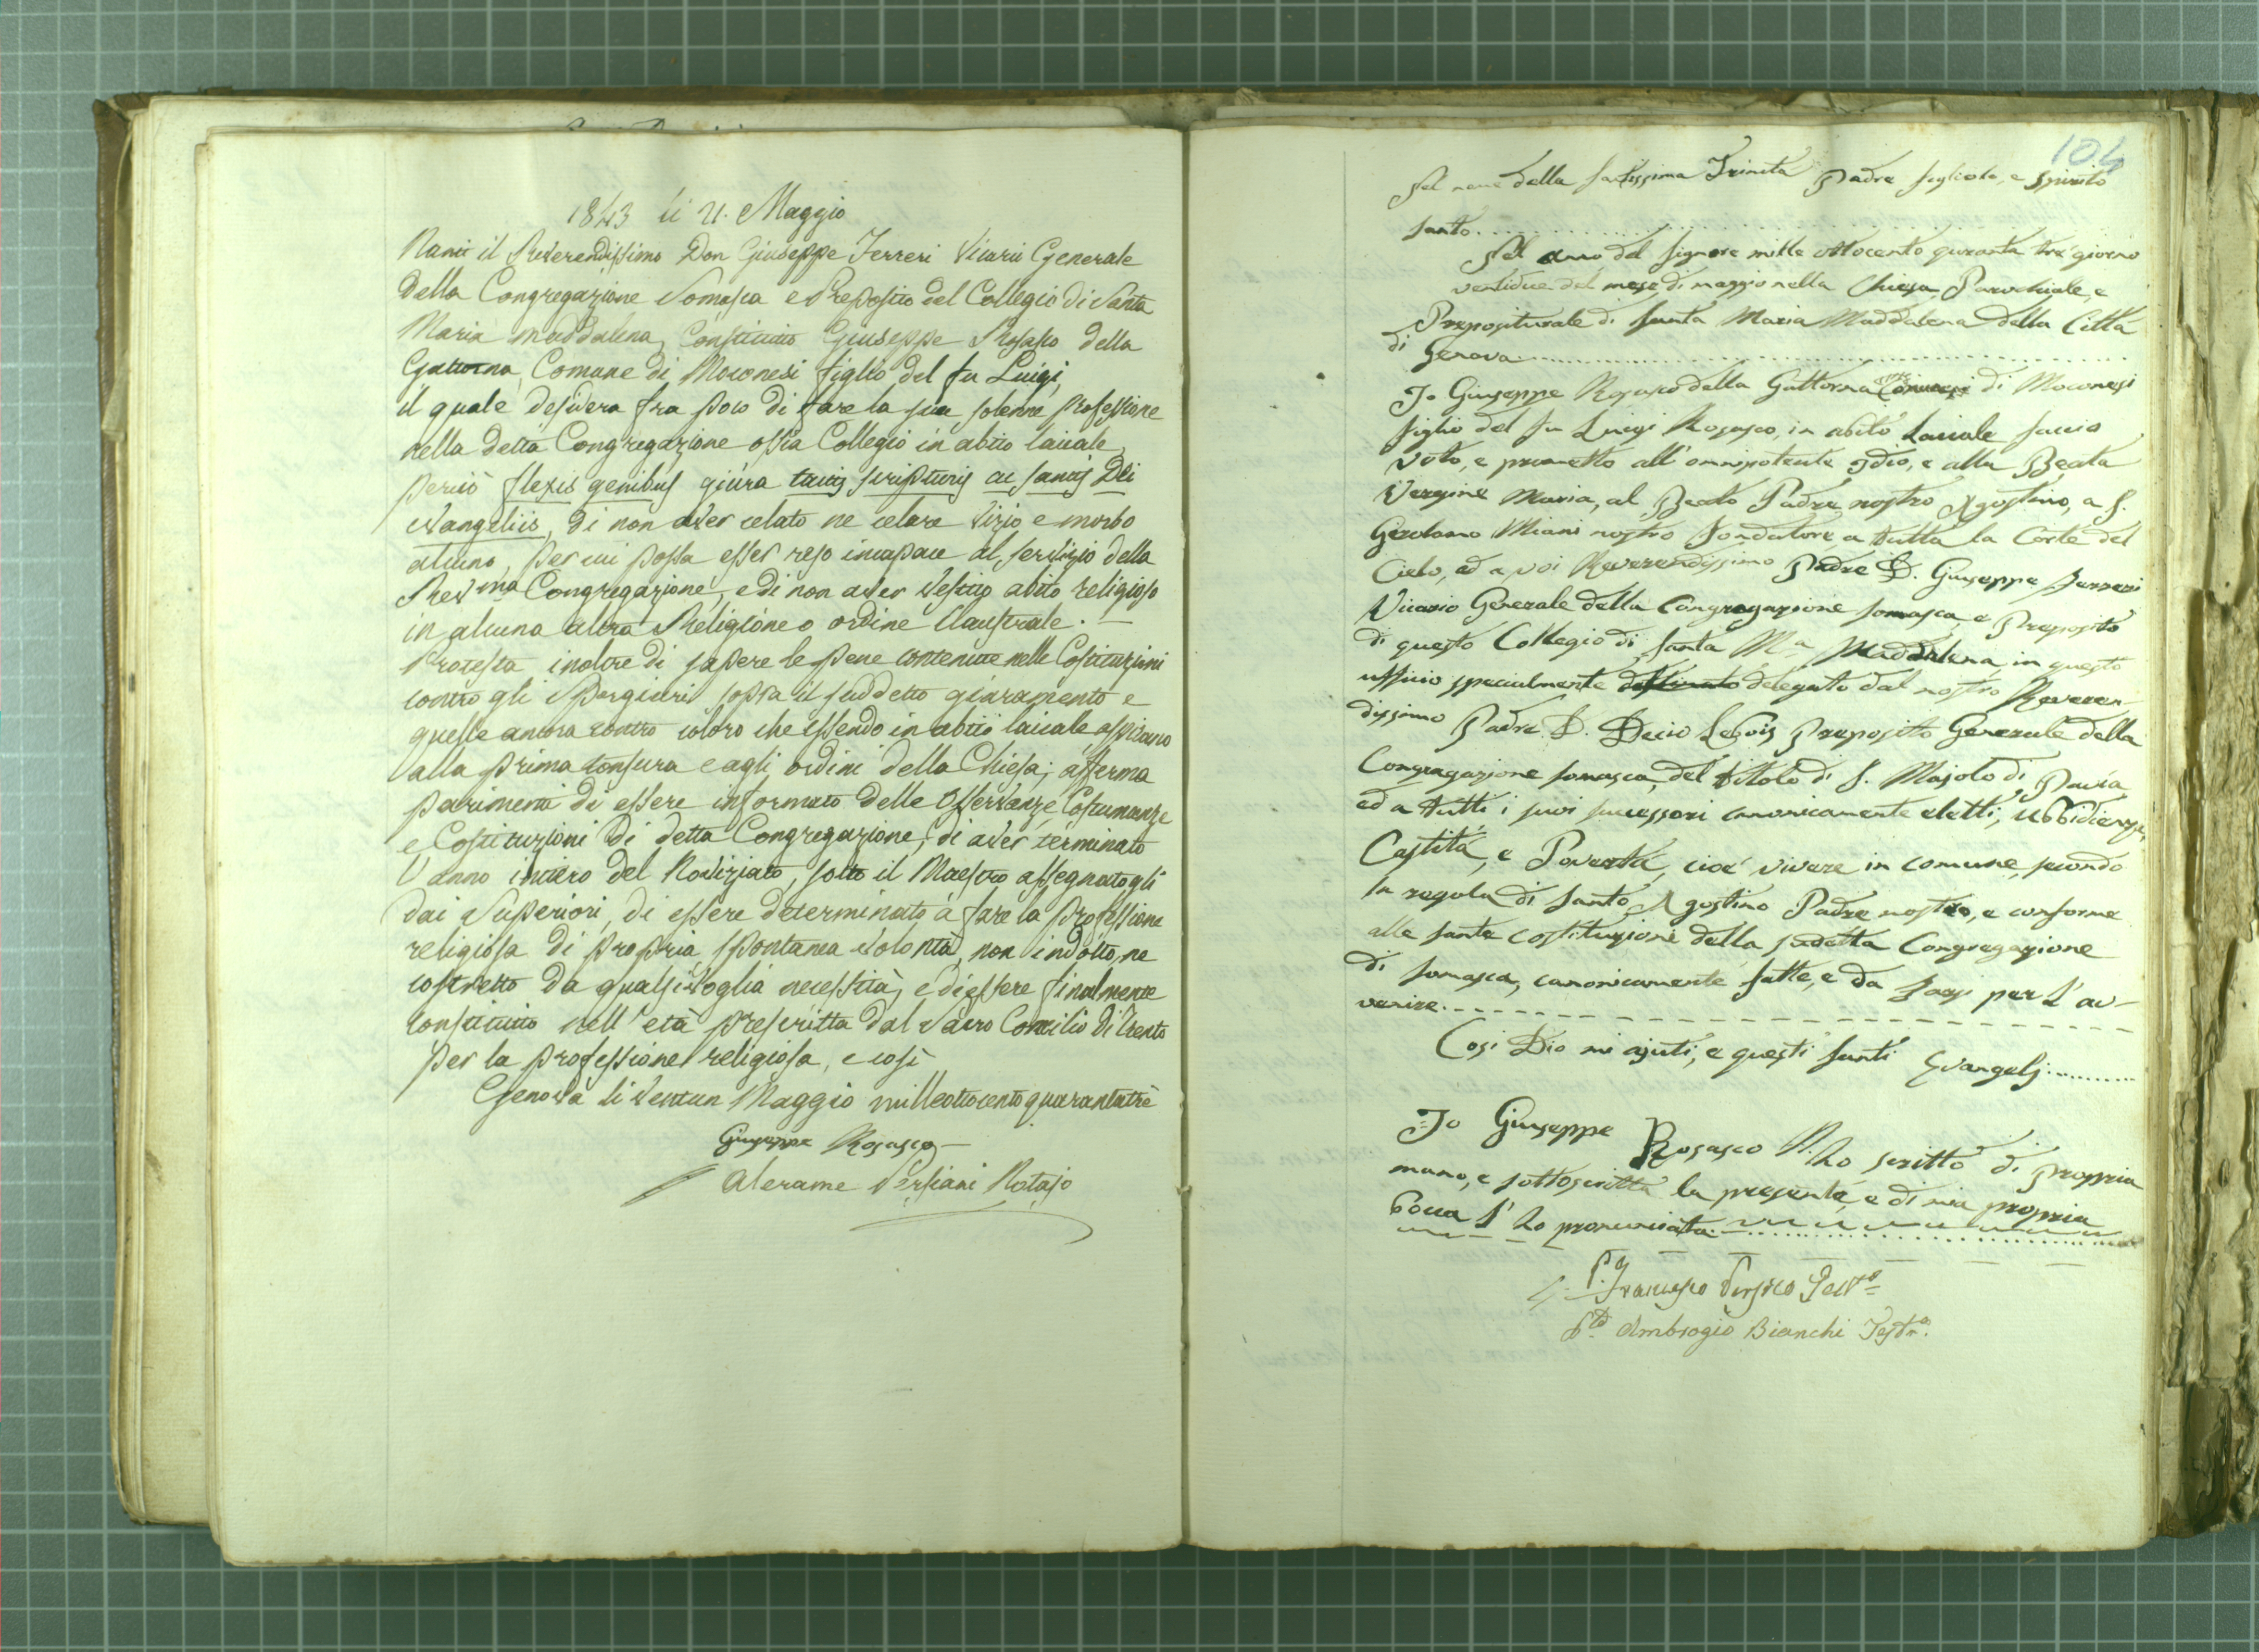 1843 li 21. Maggio
Nanti il Reverendissimo Don Giuseppe Ferreri Vicario Generale
della Congregazione Somasca e Preposito del Collegio di Santa
Maria Maddalena, Constituito Giuseppe Rosasco della
Gattorna, Comune di Moconesi figlio del fu Luigi,
il quale desidera fra poco di fare la sua solenne professione
nella detta Congregazione ossia Collegio in abito laicale
perciò flexis genibus giura tactis scripturis ac sanctis Dei
evangeliis, di non aver celato ne celare vizio e morbo
alcuno, per cui possa esser reso incapace al servizio della
Rev.ma Congregazione, e di non aver vestito abito religioso
in alcuna altra Religione o ordine Claustrale. —
Protesta inoltre di sapere le pene contenute nelle Costituzioni
contro gli spergiuri sopra il suddetto giuramento e
queste ancora contro coloro che essendo in abito laicale aspirano
alla prima tonsura e agli ordini della Chiesa; afferma
parimenti di essere informato delle Osservanze, Costumanze
e Costituzioni di detta Congregazione, di aver terminato
l'anno intiero del Noviziato, sotto il Maestro assegnatogli
dai Superiori, di essere determinato a fare la professione
religiosa di propria spontanea volontà, non indotto, ne
costretto da qualsivoglia necessità, e di essere finalmente
constituito nell'età prescritta dal Sacro Concilio di Trento
per la professione religiosa, e così
Genova li ventun Maggio milleottocentoquarantatrè
Giuseppe Rosasco
Alerame Persiani Notajo
104
Nel nome della Santissima Trinità Padre figliolo, e Spirito
Santo.
Nel anno del Signore mille ottocento quaranta trè giorno
ventidue del mese di maggio nella Chiesa Parochiale, e
Prepositurale di Santa Maria Maddalena della Città
di Genova
Io Giuseppe Rosasco della Gattorna di Moconesi
figlio del fu Luigi Rosasco, in abito Laicale faccio
voto, e prometto all'omnipotente Idio, e alla Beata
Vergine Maria, al Beato Padre nostro Agostino, a S.
Gerolamo Miani nostro fondatore a tutta la Corte del
Cielo, ed a voi Reverendissimo Padre D. Giuseppe Ferreri
Vicario Generale della Congregazione Somasca, e Preposito
di questo Collegio di Santa Ma Maddalena, in questo
ufficio specialmente destinato delegato dal nostro Reveren-
dissimo Padre D. Decio Libois Preposito Generale della
Congregazione Somasca, del titolo di S. Majolo di Pavia
ed a tutti i suoi successori canonicamente eletti, ubbidienza,
Castità, e Povertà, cioè vivere in comune secondo
la regola di Santo Agostino Padre nostro, e conforme
alle sante costituzioni della sudetta Congregazione
di Somasca, canonicamente fatte, e da farsi per l'av-
venire.
Cosi Dio mi ajuti, e questi santi Evangelj
Io Giuseppe Rosasco ho scritto di propria
mano, e sottoscritta la presente, e di mia propria
bocca l'ho pronunciata
Francesco Persico
Ambrogio Bianchi